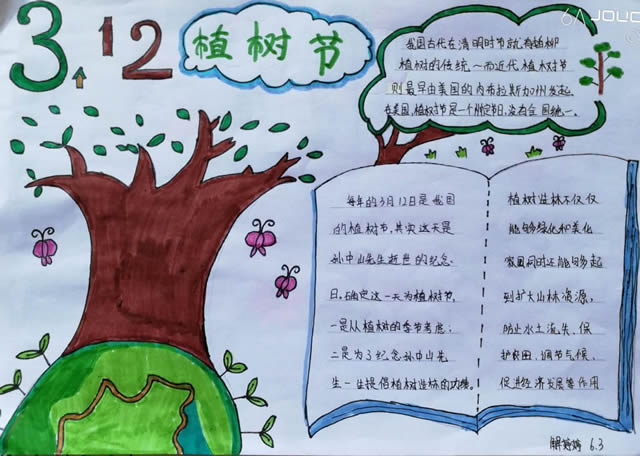 3.12
植树节
我国古代在清明时节就有插柳
植树的传统,而近代植树节
则最早由美国的内布拉斯加州发起,
在美国,植树节是一个州定节日,没有全国统一。
每年的3月12日是我国
的植树节,其实这天是
孙中山先生逝世的纪念
日,确定这一天为植树节,
一是从植树的季节考虑;
二是为了纪念孙中山先
生一生提倡植树造林的功绩。
植树造林不仅仅
能够绿化和美化
家园同时还能够起
到扩大山林资源,
防止水土流失、保
护农田、调节气候、
促进经济发展等作用
6.3